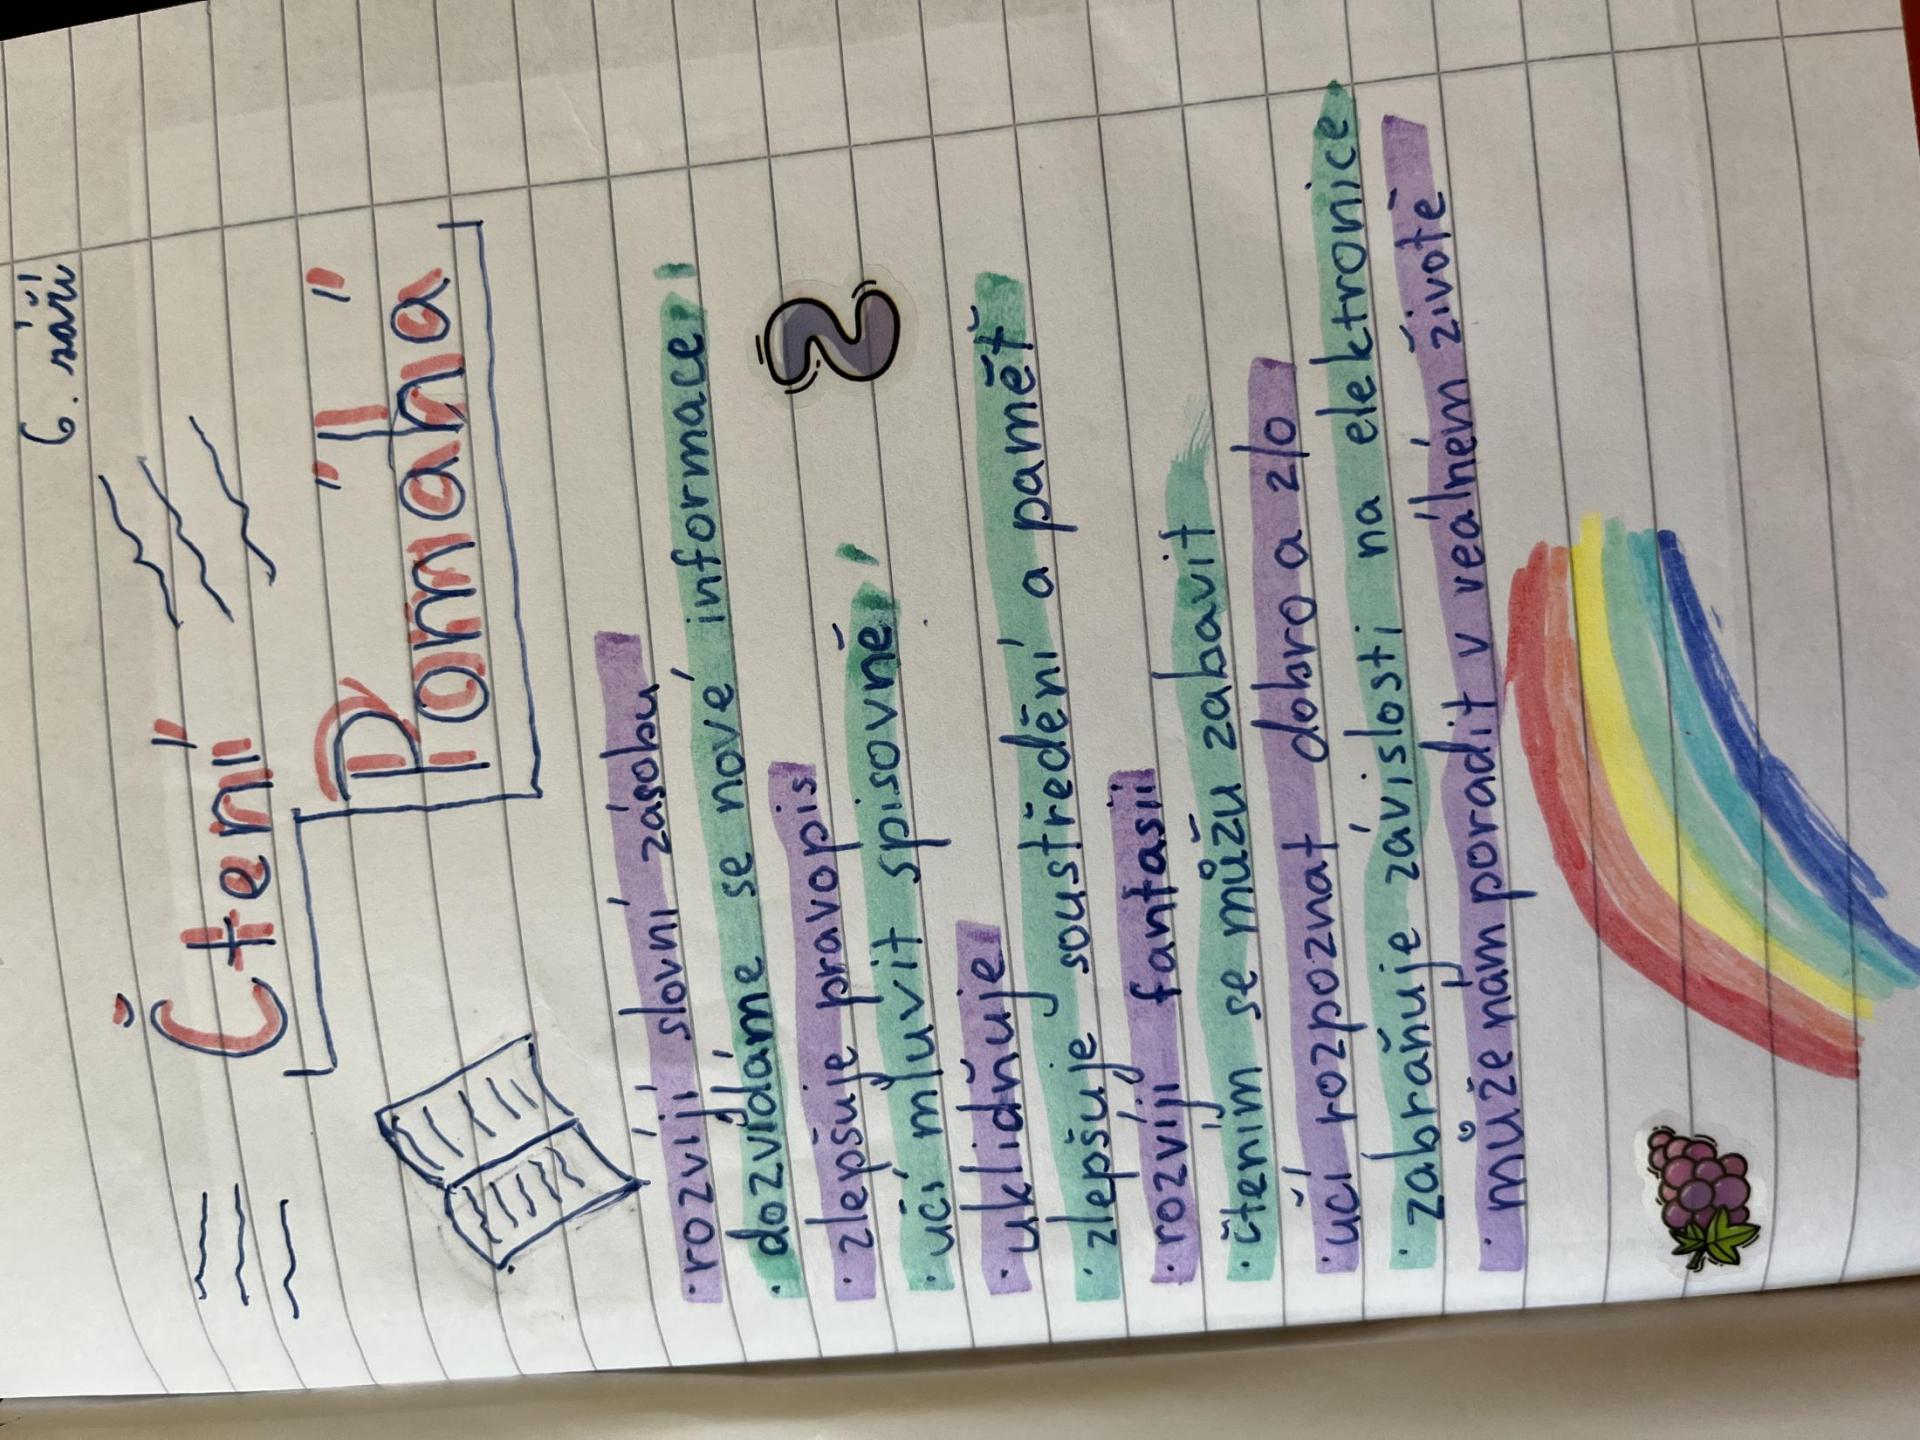 6. září
Čtení
Pomáhá
· rozvíjí slovní zásobu
· dozvídáme se nové informace
· zlepšuje pravopis
· učí mluvit spisovně
· uklidňuje
· zlepšuje soustředění a paměť
· rozvíjí fantasii
· čtením se můžu zabavit
· učí rozpoznat dobro a zlo
· zabraňuje závislosti na elektronice
· může nám poradit v reálném životě